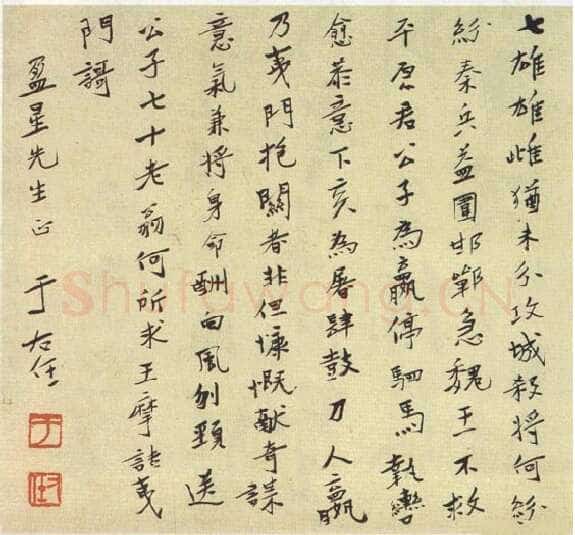 七雄雄雌猶未分攻城殺將何紛
紛秦兵益圍邯鄲急魏王不救
平原君公子為嬴停駟馬執轡
愈恭意下亥為屠肆鼓刀人嬴
乃夷門抱關者非但慷慨獻奇謀
意氣兼將身命酬向風刎頸送
公子七十老翁何所求王摩詰夷
門謌
盈星先生正 于右任
于
任
Shufawang.CN